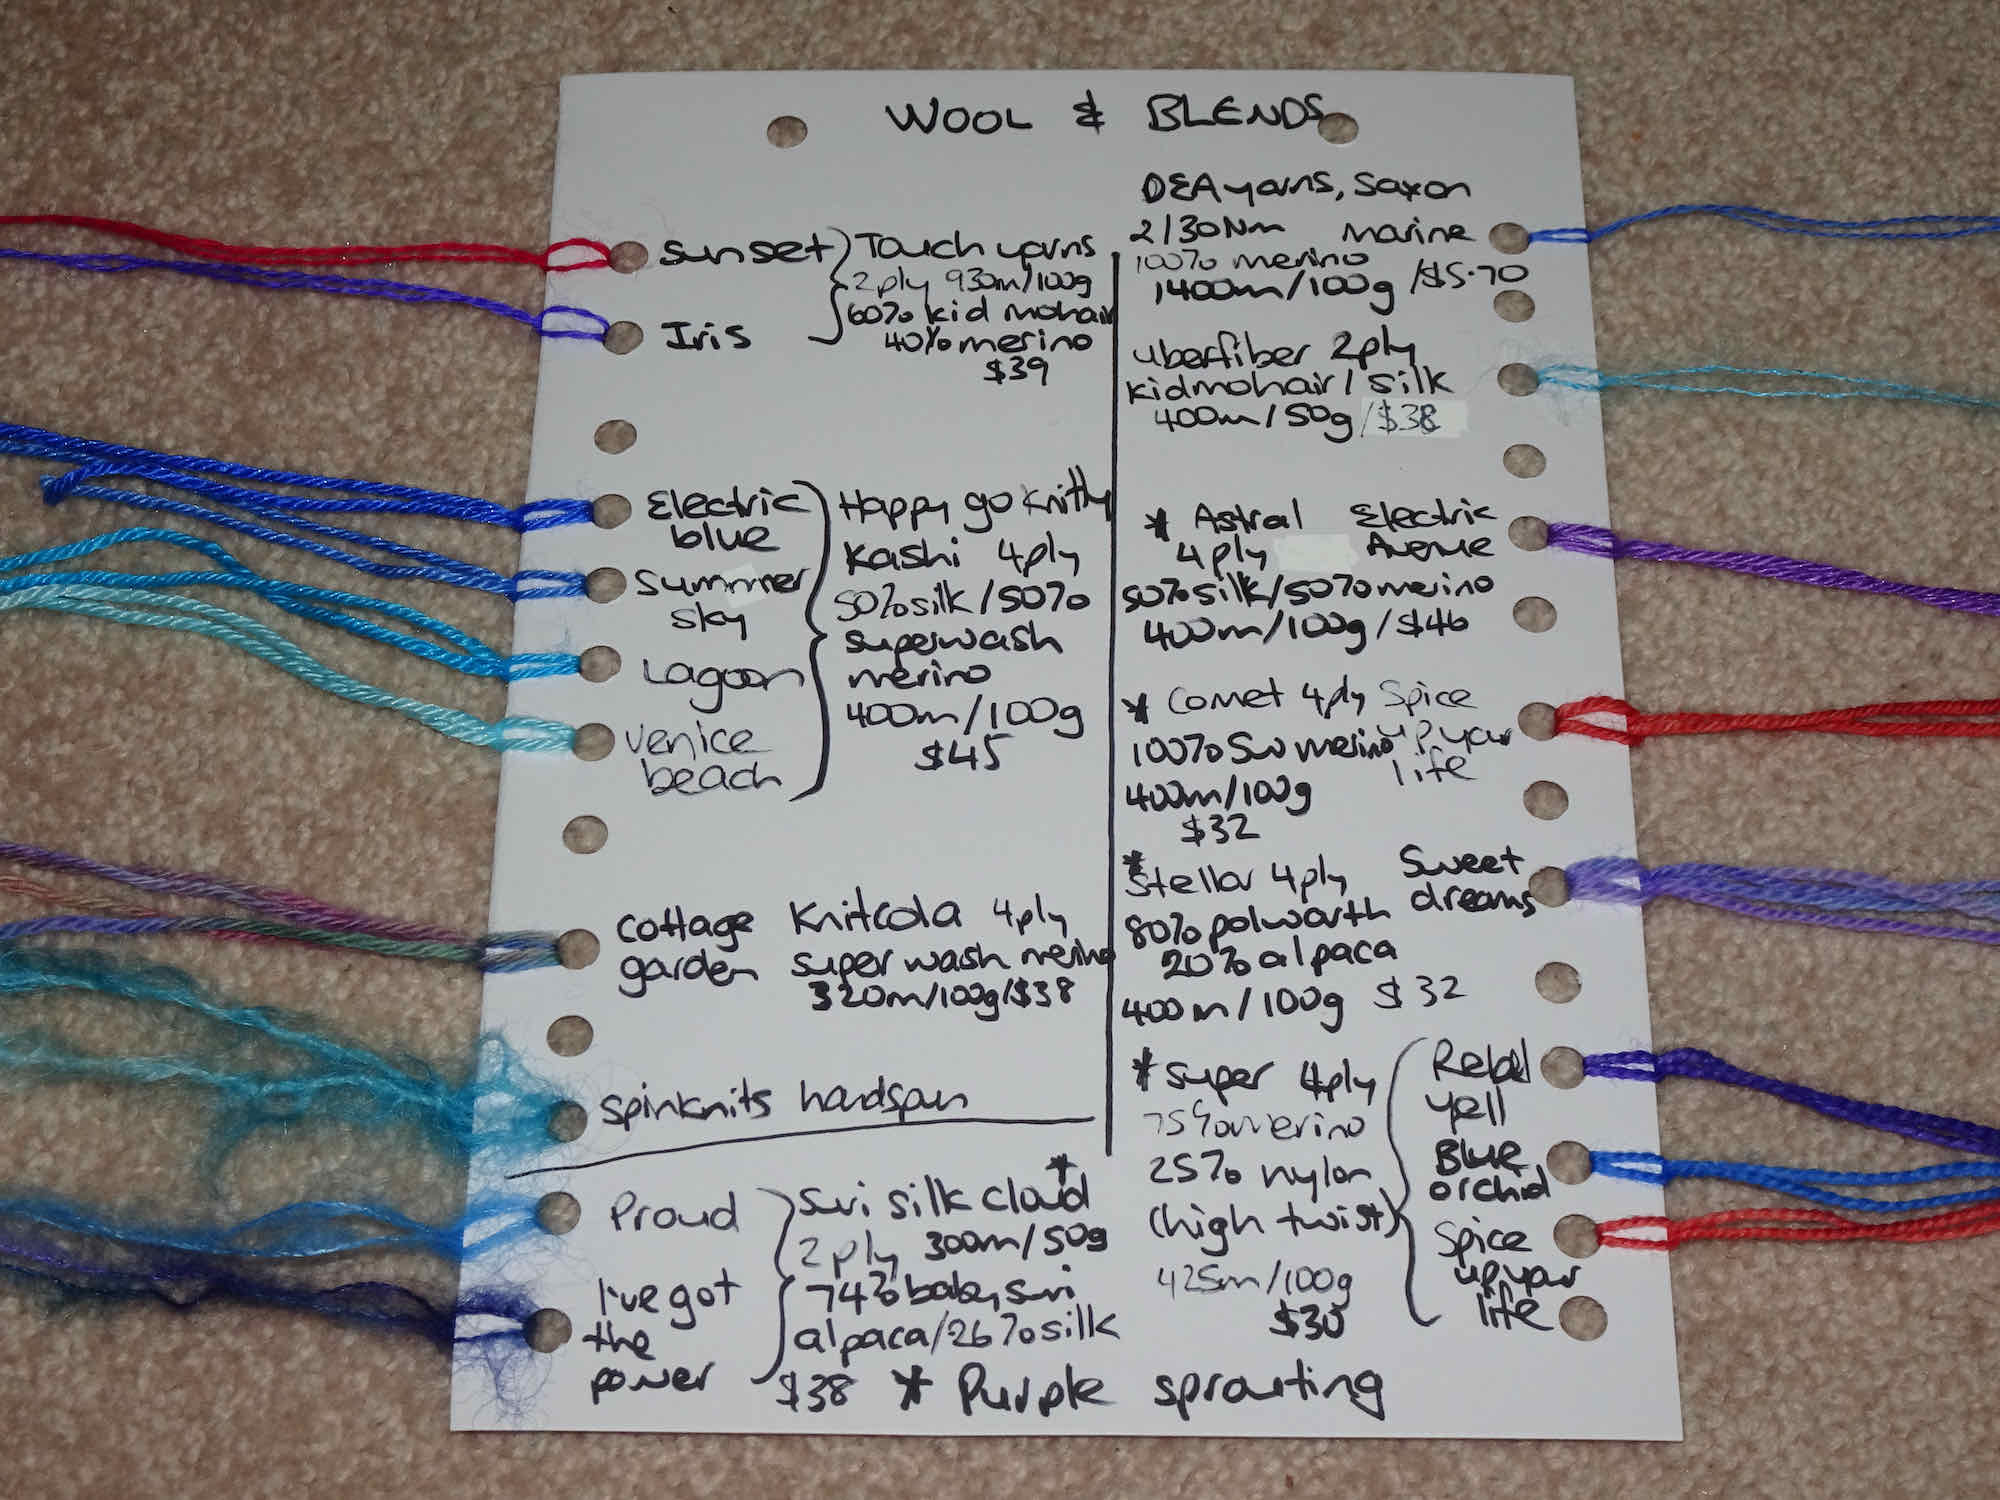 WOOL & BLENDS
Sunset
Iris
Touch yarns
2ply 930m/100g
60% kid mohair
40% merino
$39
Electric
blue
Summer
sky
Lagoon
Venice
beach
Happy go knitty
Kashi 4ply
50% silk/50%
superwash
merino
400m/100g
$45
Cottage
garden
Knitcola 4ply
super wash merino
320m/100g/$38
Spinknits handspun
Proud
I've got
the
power
Suri silk cloud*
2ply 300m/50g
74% baby suri
alpaca/26% silk
$38
* Purple sprouting
DEA yarns, Saxon
2/30Nm marine
100% merino
1400m/100g/$5.70
uberfiber 2ply
kidmohair/silk
400m/50g/$38
* Astral
4ply
Electric
Avenue
50% silk/50% merino
400m/100g/$46
* Comet 4ply
100% SW merino
400m/100g
$32
Spice
up your
life
* Stellar 4ply
80% polwarth
20% alpaca
400m/100g $32
Sweet
dreams
* Super 4ply
75% merino
25% nylon
(high twist)
425m/100g
$30
Rebel
yell
Blue
orchid
Spice
up your
life